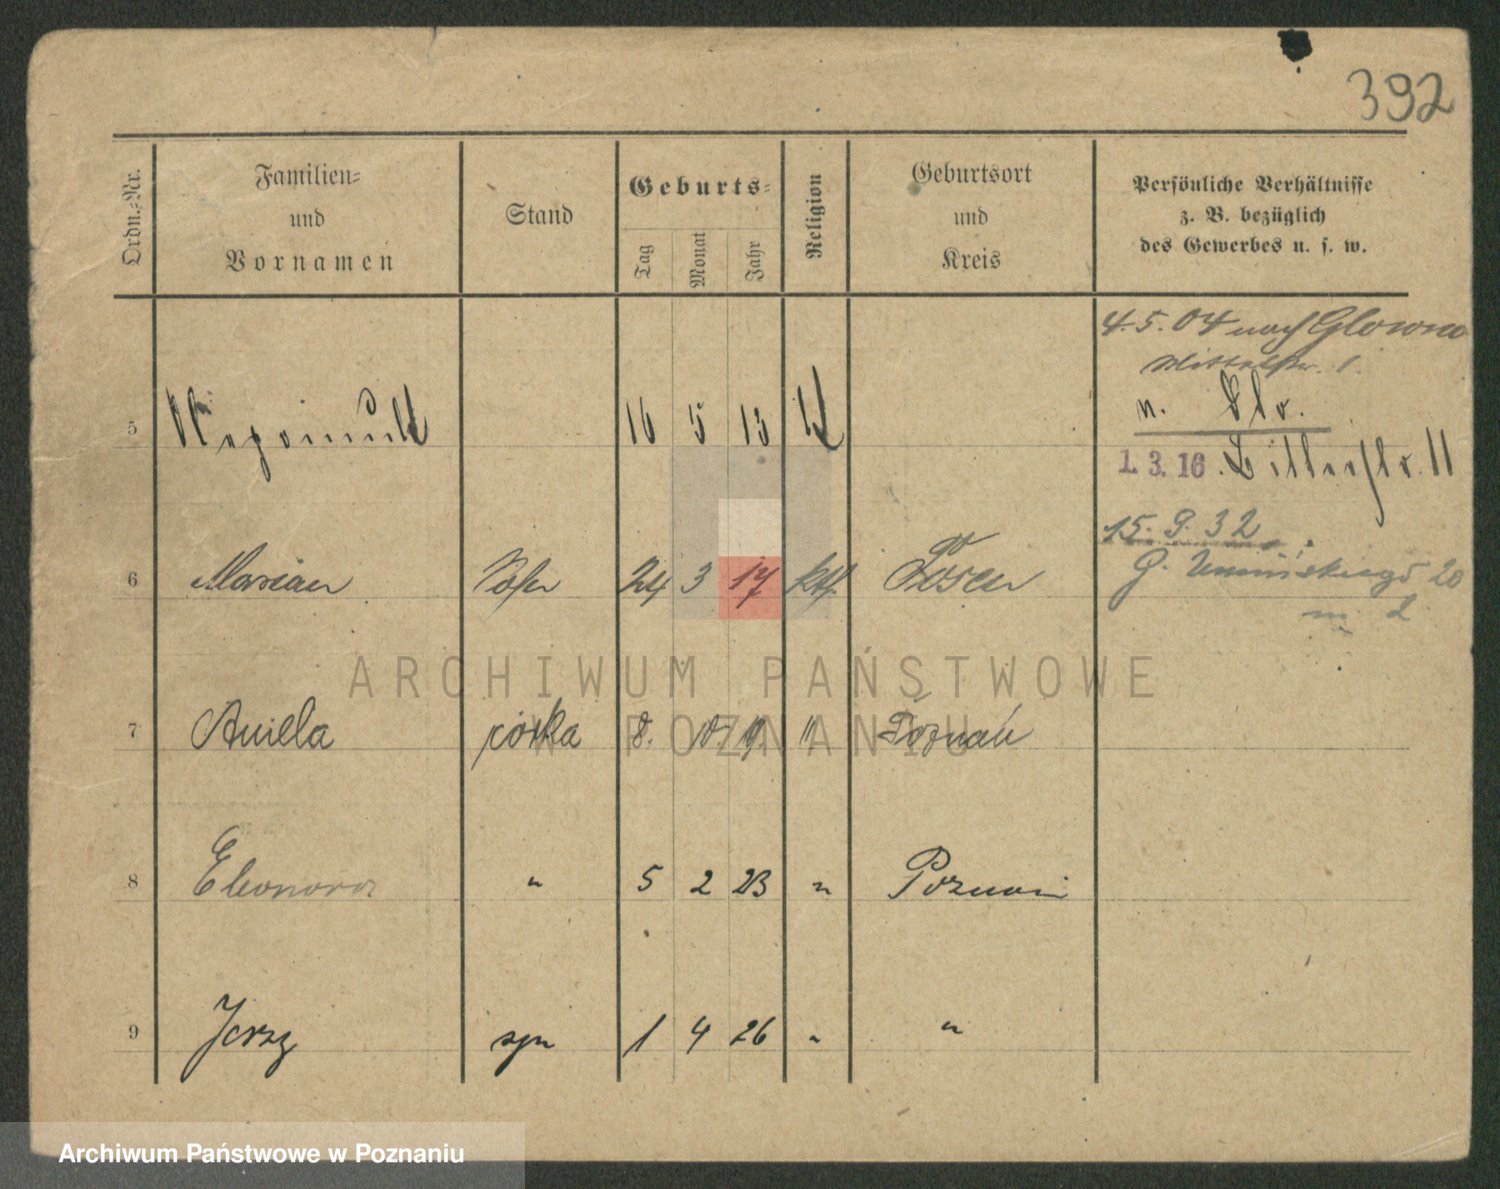 392
Ordn.-Nr.
Familien-
und
Vornamen
Stand
Geburts-
Tag
Monat
Jahr
Religion
Geburtsort
und
Kreis
Persönliche Verhältnisse
z. B. bezüglich
des Gewerbes u. s. w.
4.5.04 nach Glowno
n.
1.3.16.
15.9.32
20
m 2
5 16 5 13
6 Marian Sohn 24 3 17 kth. Posen
7 Aniela córka 8. 10 19 " Poznań
8 Eleonora " 5 2 23 " Poznań
9 Jerzy syn 1 4 26 " "
ARCHIWUM PAŃSTWOWE
W POZNANIU
Archiwum Państwowe w Poznaniu